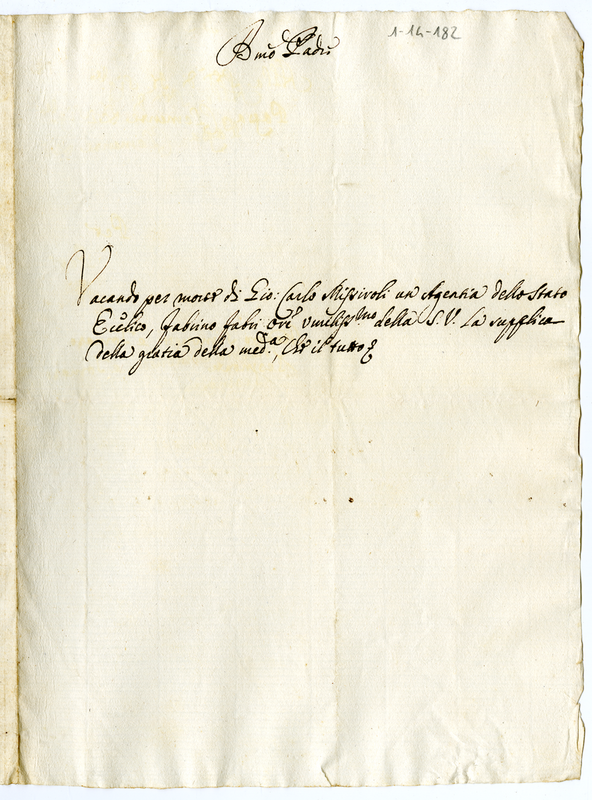 1-14-182
Bmo Padre
Vacando per morte di Gio: Carlo Missiroli un Agentia dello Stato
Ecc.lico, Fabrino Fabri Ore humiliss.mo della S. V. La supplica
della gratia della med.a, Che il tutto